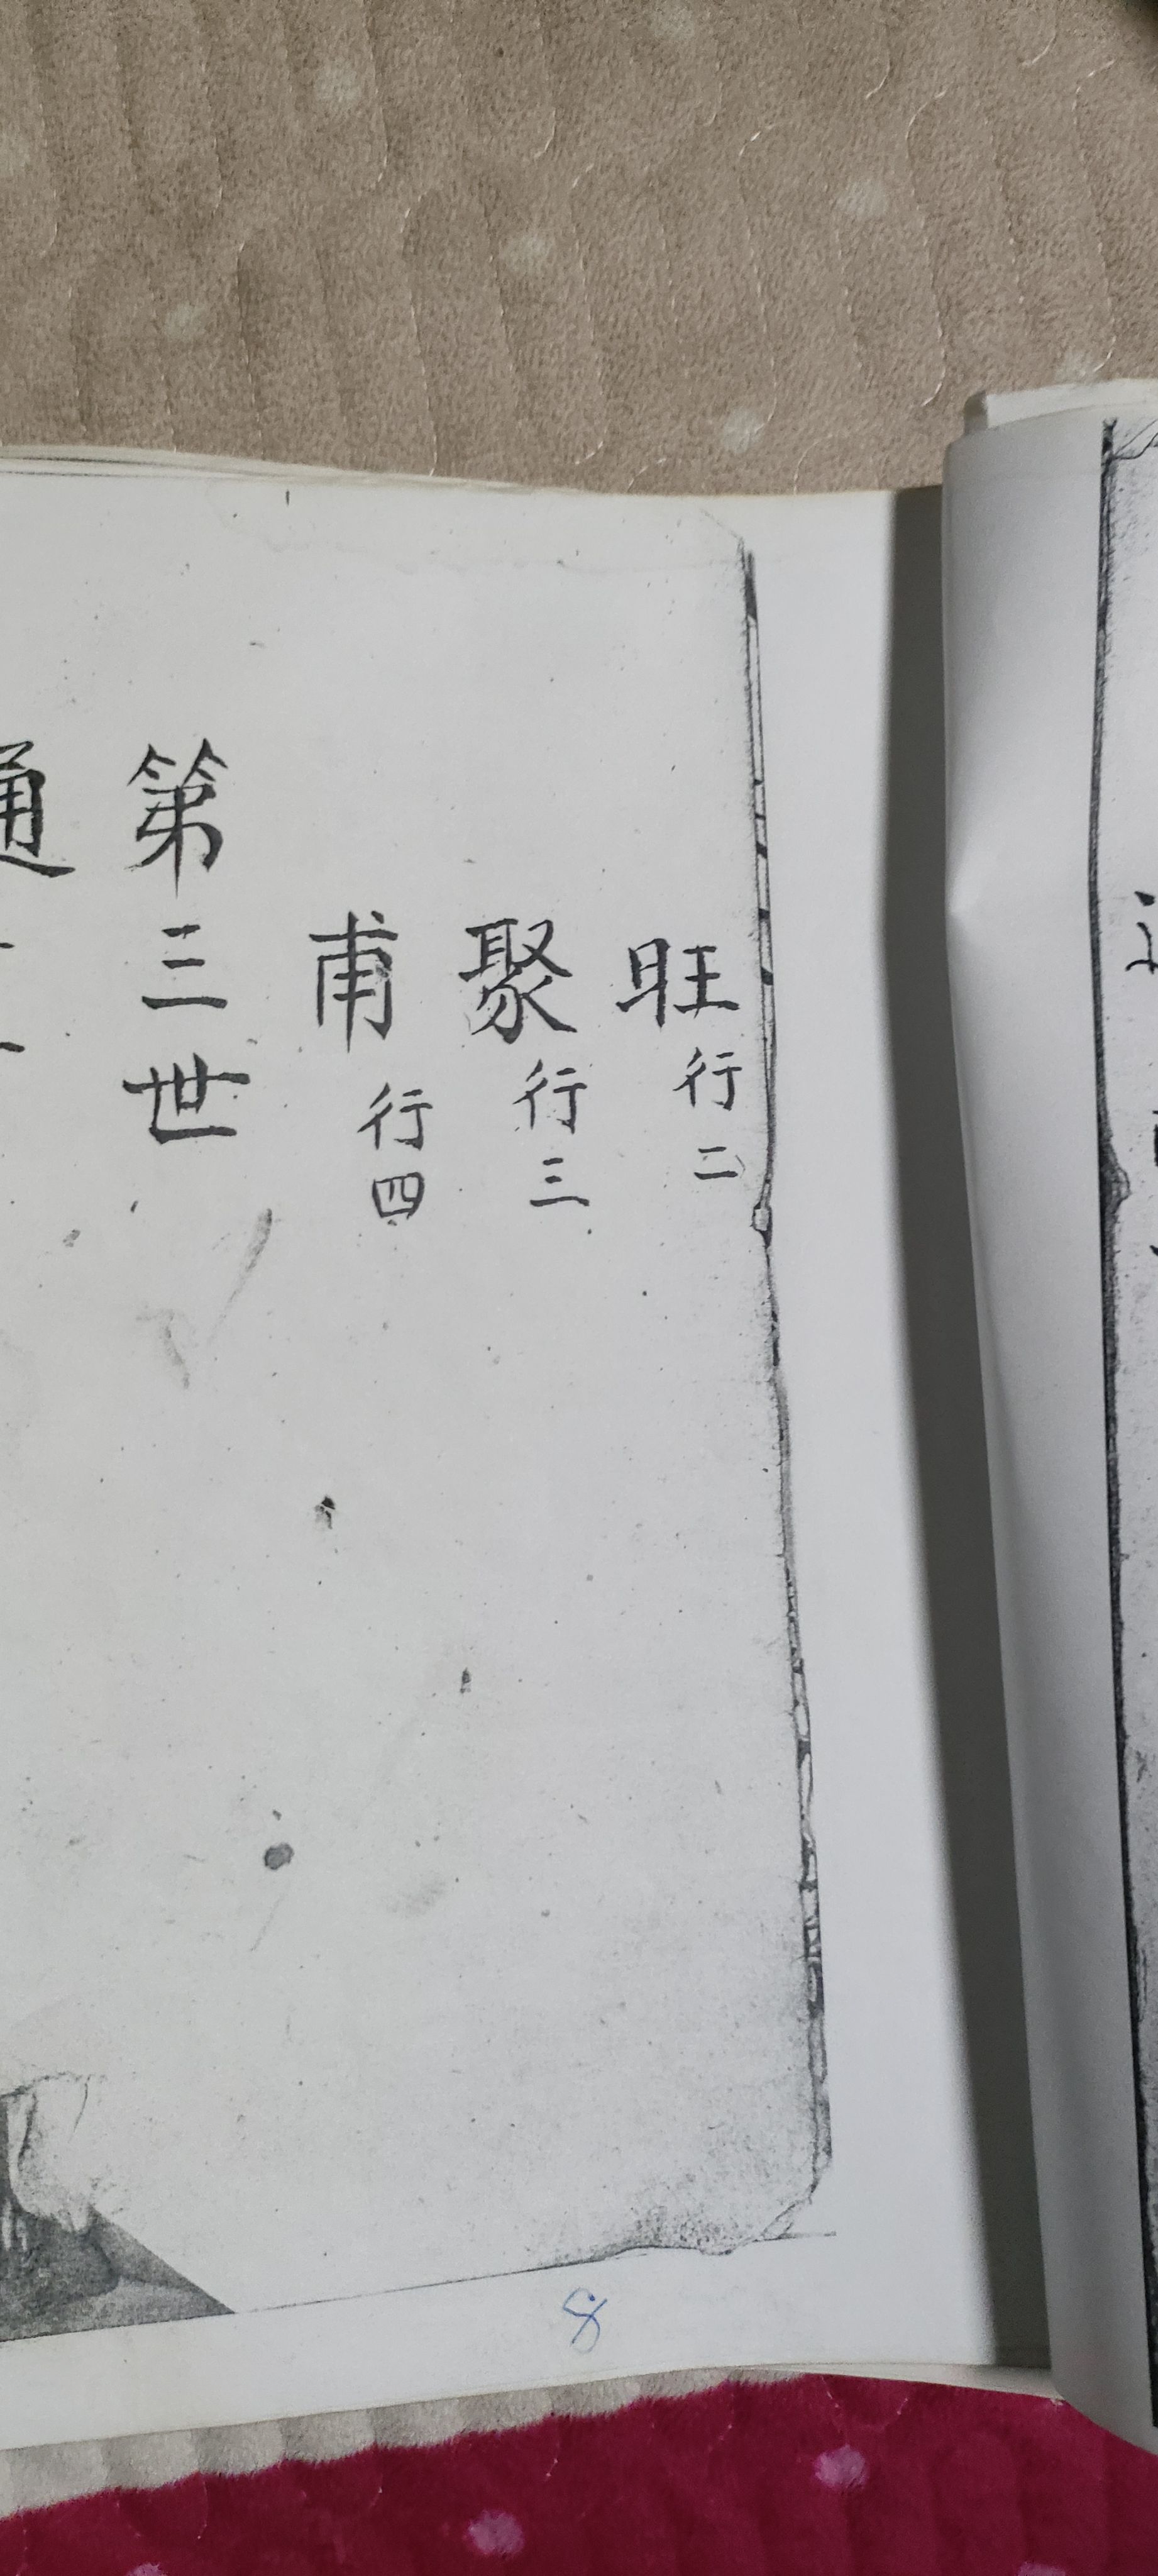 旺行二
聚行三
甫行四
第三世
通
8